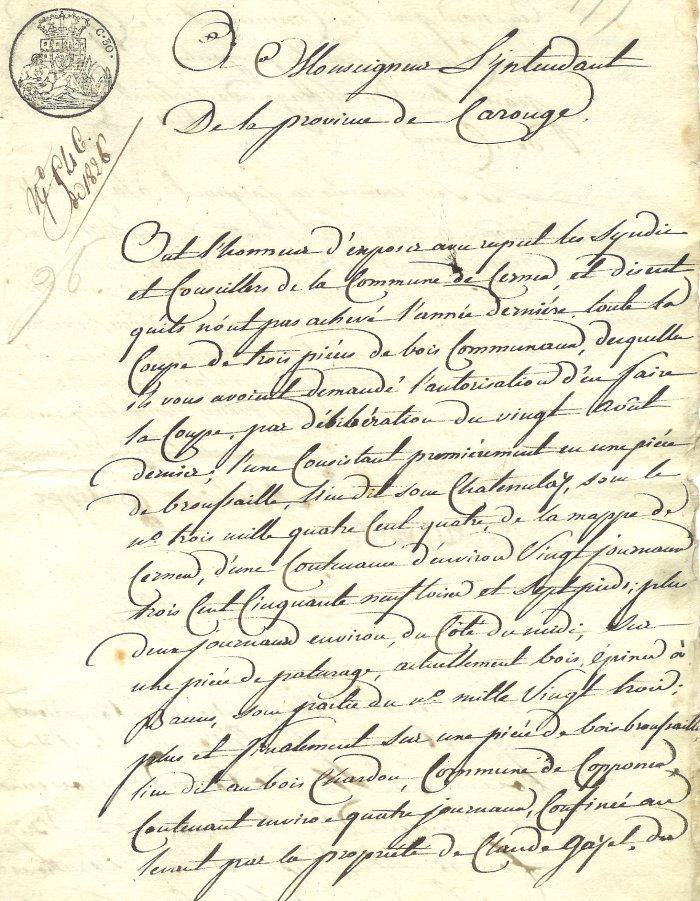 C. 30.
A Monseigneur L'intendant
De la province de Carouge.
N.º 546.
de 1826
96.
Ont l'honneur d'exposer avec respect les Syndic
et Conseillers de la Commune de Cernex, et disent
qu'ils n'ont pas achevé l'année dernière, toute la
Coupe de trois pièces de bois Communaux, desquelles
ils vous avoient demandé l'autorisation d'en faire
la Coupe, par délibération du vingt Août
dernier, l'une Consistant premièrement en une pièce
de broussaille, lieu dit sous Chatemulaz, sous le
n.º trois mille quatre Cent quatre, de la mappe de
Cernex, d'une Contenance d'environ Vingt journaux
trois Cent Cinquante neuf toises et sept pieds; plus
deux journaux environ, du Côté du midi, sur
une pièce de paturage, actuellement bois, épines à
sous partie du n.º mille Vingt trois;
plus et finalement sur une pièce de bois broussaille
lieu dit au bois Chardon, Commune de Copponex
Contenant environ quatre journaux, Confinée au
levant par la propriété de Claude Gazel, du